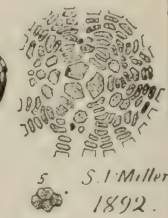 5
S. I. Miller
1892.